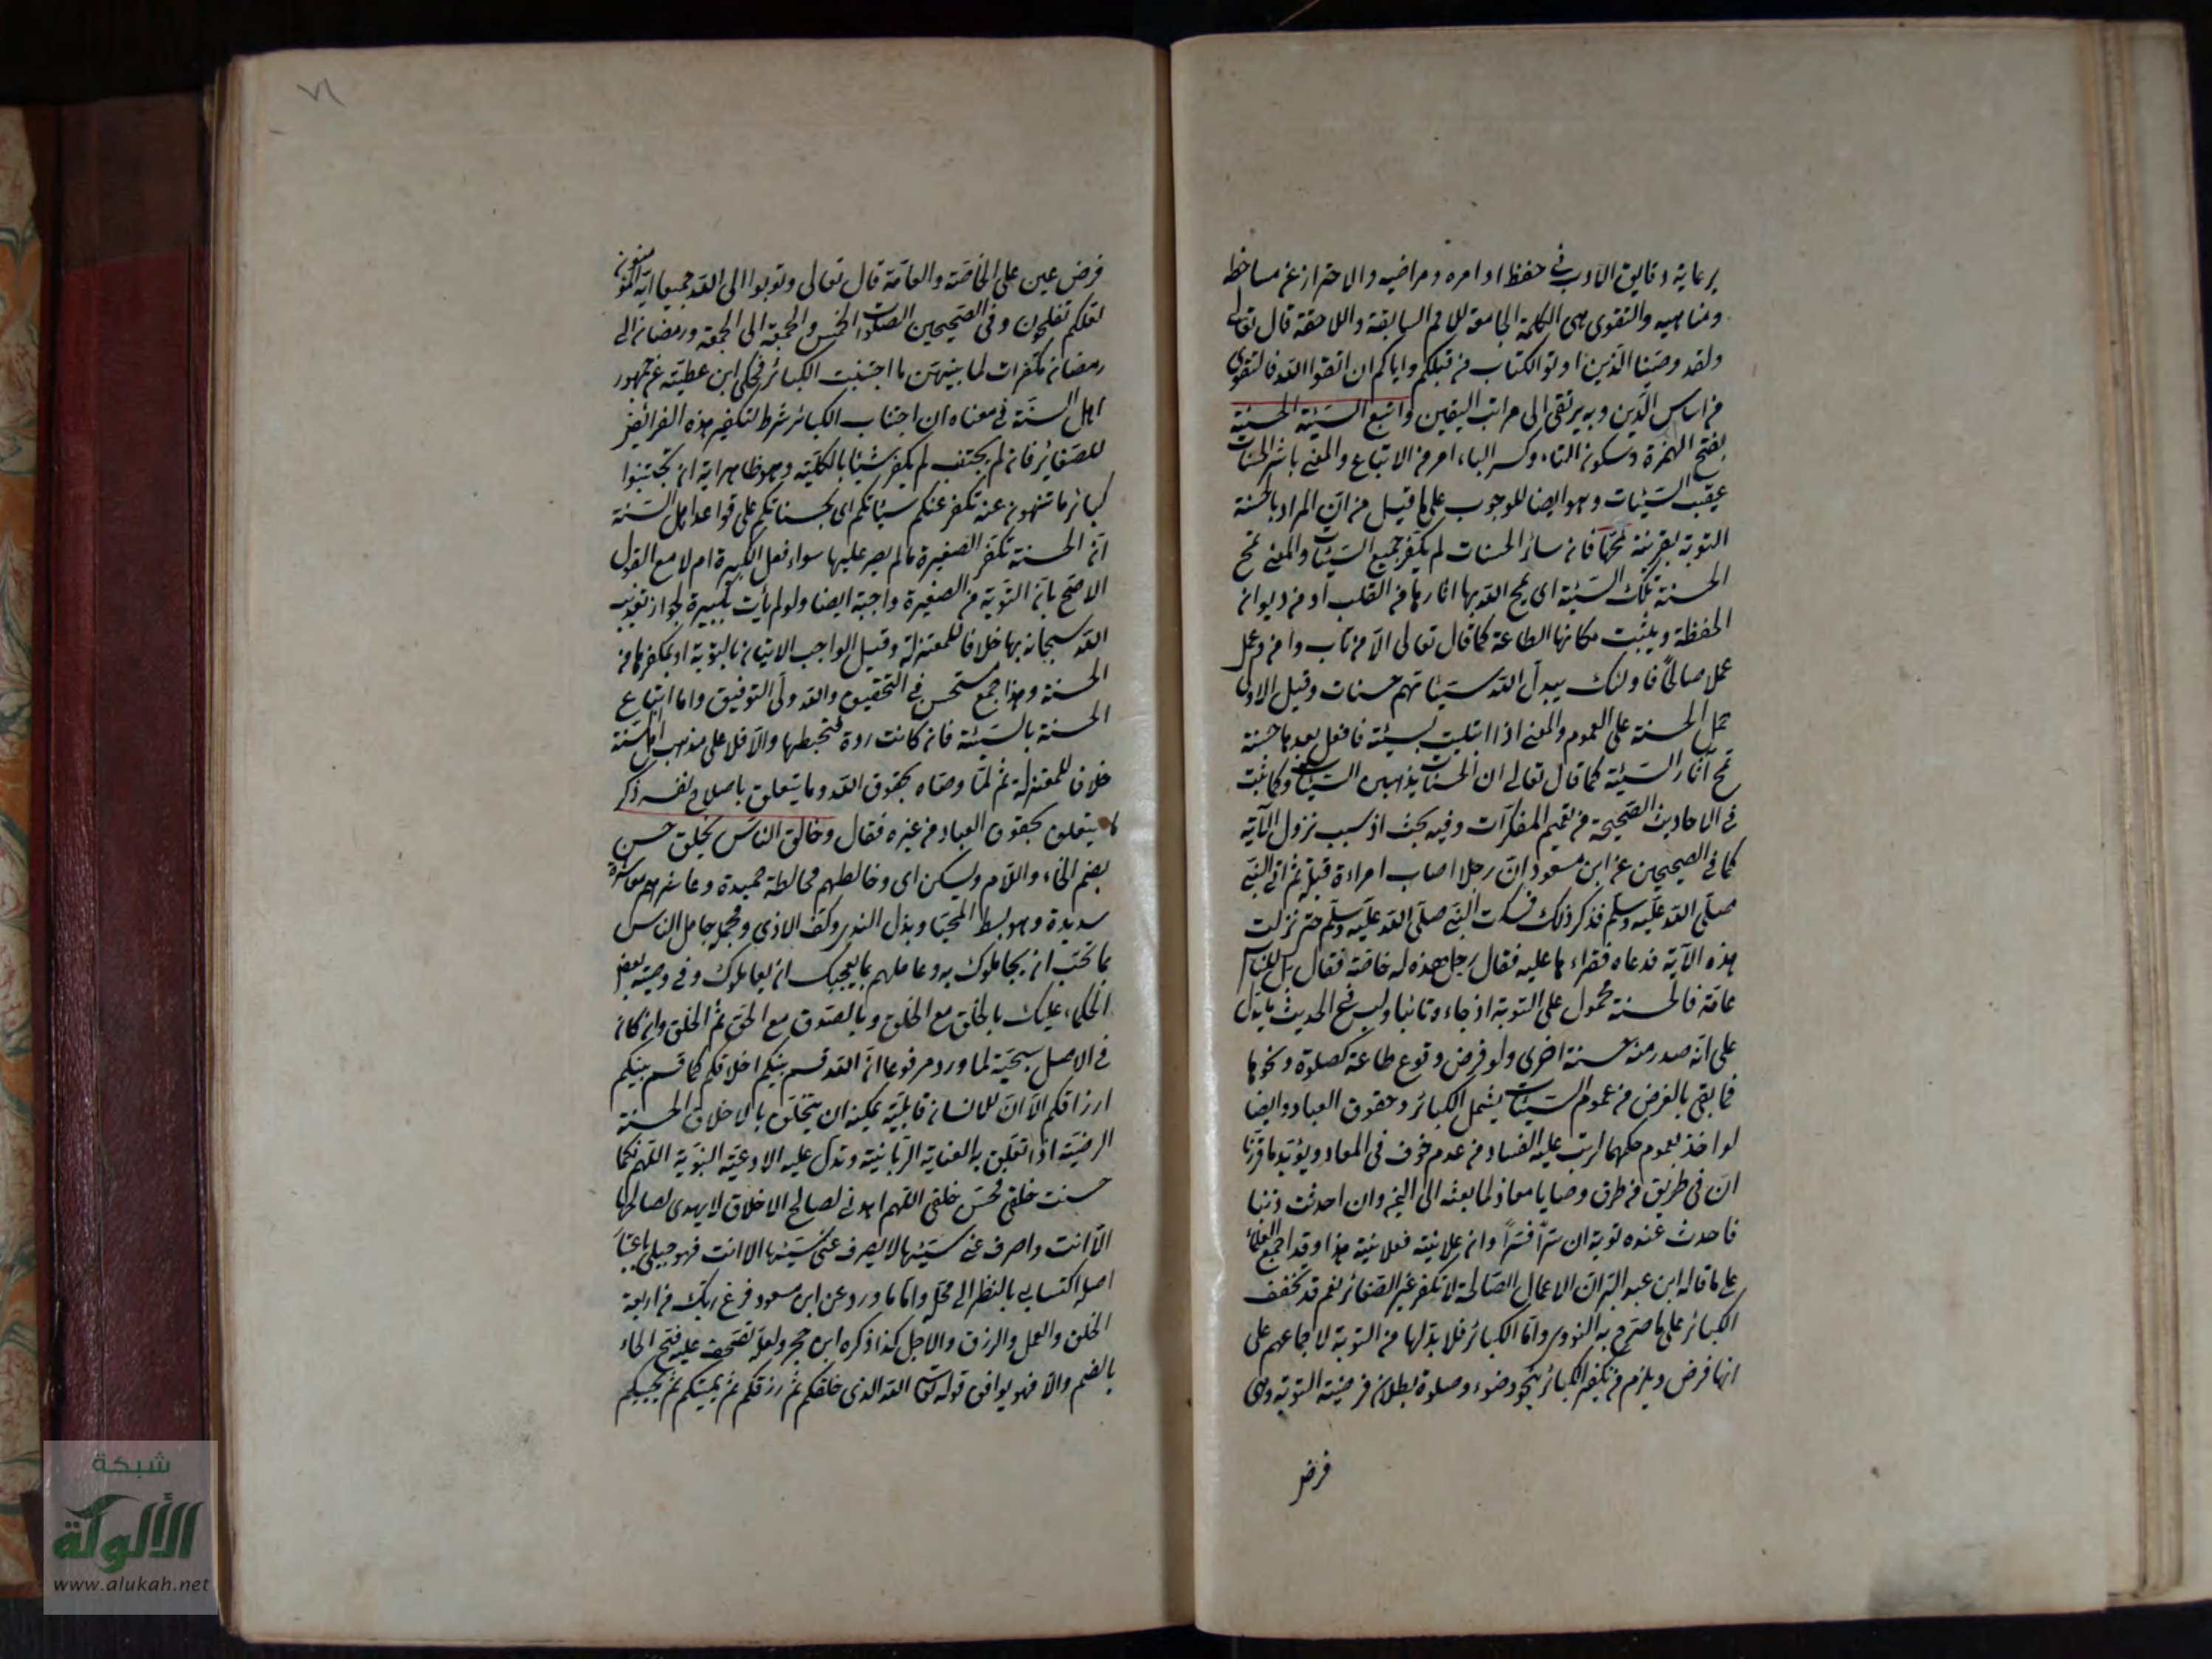 برعاية دقايق الادب في حفظ اوامره ومراضيه والاحتراز عن مساخطه
ومناهيه والتقوى هي الكلمة الجامعة للامم السابقة واللاحقة قال تعالى
ولقد وصّينا الّذين اوتوا الكتاب من قبلكم واياكم ان اتقوا الله فالتقوى
من اساس الدّين وبه يرتقى الى مراتب اليقين واتبع السّيئة الحسنة
بفتح الهمزة وسكون التاء وكسر الباء امر من الاتباع والمعنى باشر الحسنات
عقب السّيئات وهو ايضا للوجوب على ما قيل من ان المراد بالحسنة
التوبة بقرينة تمحها فان سائر الحسنات لم يكفر جميع السّيئات والمعنى تمح
الحسنة تلك السّيئة اى يمح الله بها اثارها من القلب او من ديوان
الحفظة ويثبت مكانها الطاعة كما قال تعالى الّا من تاب وامن وعمل
عملا صالحًا فاولئك يبدّل الله سيّئاتهم حسنات وقيل الاولى
حمل الحسنة على العموم والمعنى اذا ابتليت بسيئة فافعل بعدها حسنة
تمح آثار السّيئة كما قال تعالى ان الحسنات يذهبن السّيئات وكما ثبت
في الاحاديث الصّحيحة من تعميم المكفرات وفيه بحث اذ سبب نزول الآية
كما في الصحيحين عن ابن مسعود انّ رجلا اصاب امراءة قبلة ثم اتى النّبي
صلّى الله عليه وسلّم فذكر ذلك فسكت النّبي صلّى الله عليه وسلّم حتى نزلت
هذه الآية فدعاه فقراءها عليه فقال رجل هذه له خاصّة فقال بل للنّاس
عامّة فالحسنة محمول على التوبة اذ جاءه تائبا وليس في الحديث ما يدلّ
على انّه صدر منه حسنة اخرى ولو فرض وقوع طاعة كصلوة ونحوها
فما بقى بالغرض من عموم السّيئات يشمل الكبائر وحقوق العباد وايضا
لو اخذ بعموم حكمهما لرتب عليه الفساد من عدم خوف في المعاد ويؤيّد ما قرّرنا
انّ في طريق من طرق وصايا معاذ لما بعثه الى اليمن وان احدثت ذنبا
فاحدث عنده توبة ان سرًّا فسرًّا وان علانية فعلانية هذا وقد اجمع العلماء
على ما قاله ابن عبد البرّ انّ الاعمال الصّالحة لا تكفر غير الصّغائر نعم قد تخفف
الكبائر على ما صرّح به النووى وامّا الكبائر فلا بدّ لها من التوبة لاجماعهم على
انها فرض ويلزم من تكفير الكبائر بنحو وضوء وصلوة بطلان فرضيّة التوبة وهى
فرض
٧١
فرض عين على الخاصّة والعامّة قال تعالى وتوبوا الى الله جميعا ايّه المؤمنون
لعلكم تفلحون وفي الصّحيحين الصلوات الخمس والجمعة الى الجمعة ورمضان الى
رمضان مكفرات لما بينهن ما اجتنبت الكبائر فحكى ابن عطيّة عن جمهور
اهل السنّة في معناه ان اجتناب الكبائر شرط لتكفير هذه الفرائض
للصّغائر فان لم يجتنب لم يكفر شيئا بالكلّية وهو ظاهر اية ان تجتنبوا
كبائر ما تنهون عنه نكفر عنكم سيّئاتكم اى بحسناتكم على قواعد اهل السّنة
انّ الحسنة تكفر الصغيرة ما لم يصر عليها سواء فعل الكبيرة ام لا مع القول
الاصحّ بانّ التّوبة من الصغيرة واجبة ايضا ولو لم يأت بكبيرة لجواز تعذيب
الله سبحانه بها خلافا للمعتزلة وقيل الواجب الاتيان بالتوبة او بمكفرها من
الحسنة وهذا جمع مستحسن في التحقيق والله ولّى التوفيق واما اتباع
الحسنة بالسّيئة فان كانت ردة فتحبطها والّا فلا على مذهب اهل السّنة
خلافا للمعتزلة ثم لمّا وصّاه بحقوق الله وما يتعلق باصلاح نفسه ذكر
ما يتعلق بحقوق العباد من غيره فقال وخالق الناس بخلق حسن
بضم الخاء واللّام ويسكن اى وخالطهم مخالطة حميدة وعاشرهم معاشرة
سديدة وهو بسط المحيّا وبذل الندى وكفّ الاذى ومجمله جامل الناس
بما تحبّ ان يجاملوك به وعاملهم بما يعجبك ان يعاملوك وفي وصيّة بعض
الحكماء عليك بالخلق مع الخلق وبالصّدق مع الحقّ ثم الخلق وان كان
في الاصل سجيّة لما ورد مرفوعا انّ الله قسم بينكم اخلاقكم كما قسم بينكم
ارزاقكم الّا انّ للانسان قابليّة يمكنه ان يتخلّق بالاخلاق الحسنة
الرضيّة اذا تعلّق به العناية الرّبّانيّة وتدلّ عليه الادعيّة النبّوية اللّهم كما
حسنت خلقى فحسّن خلقى اللّهم اهدنى لصالح الاخلاق لا يهدى لصالحها
الّا انت واصرف عنى سيّئها لا يصرف عنّى سيّئها الا انت فهو جبلى باعتبار
اصله اكتسابى بالنظر الى محلّه وامّا ما ورد عن ابن مسعود فرغ ربّك من اربعة
الخلق والعمل والرزق والاجل كذا ذكره ابن حجر ولعله تصحف عليه فتح الخاء
بالضم والّا فهو يوافق قوله تعالى الله الذى خلقكم ثمّ رزقكم ثمّ يميتكم ثمّ يحييكم
شبكة
الألوكة
www.alukah.net